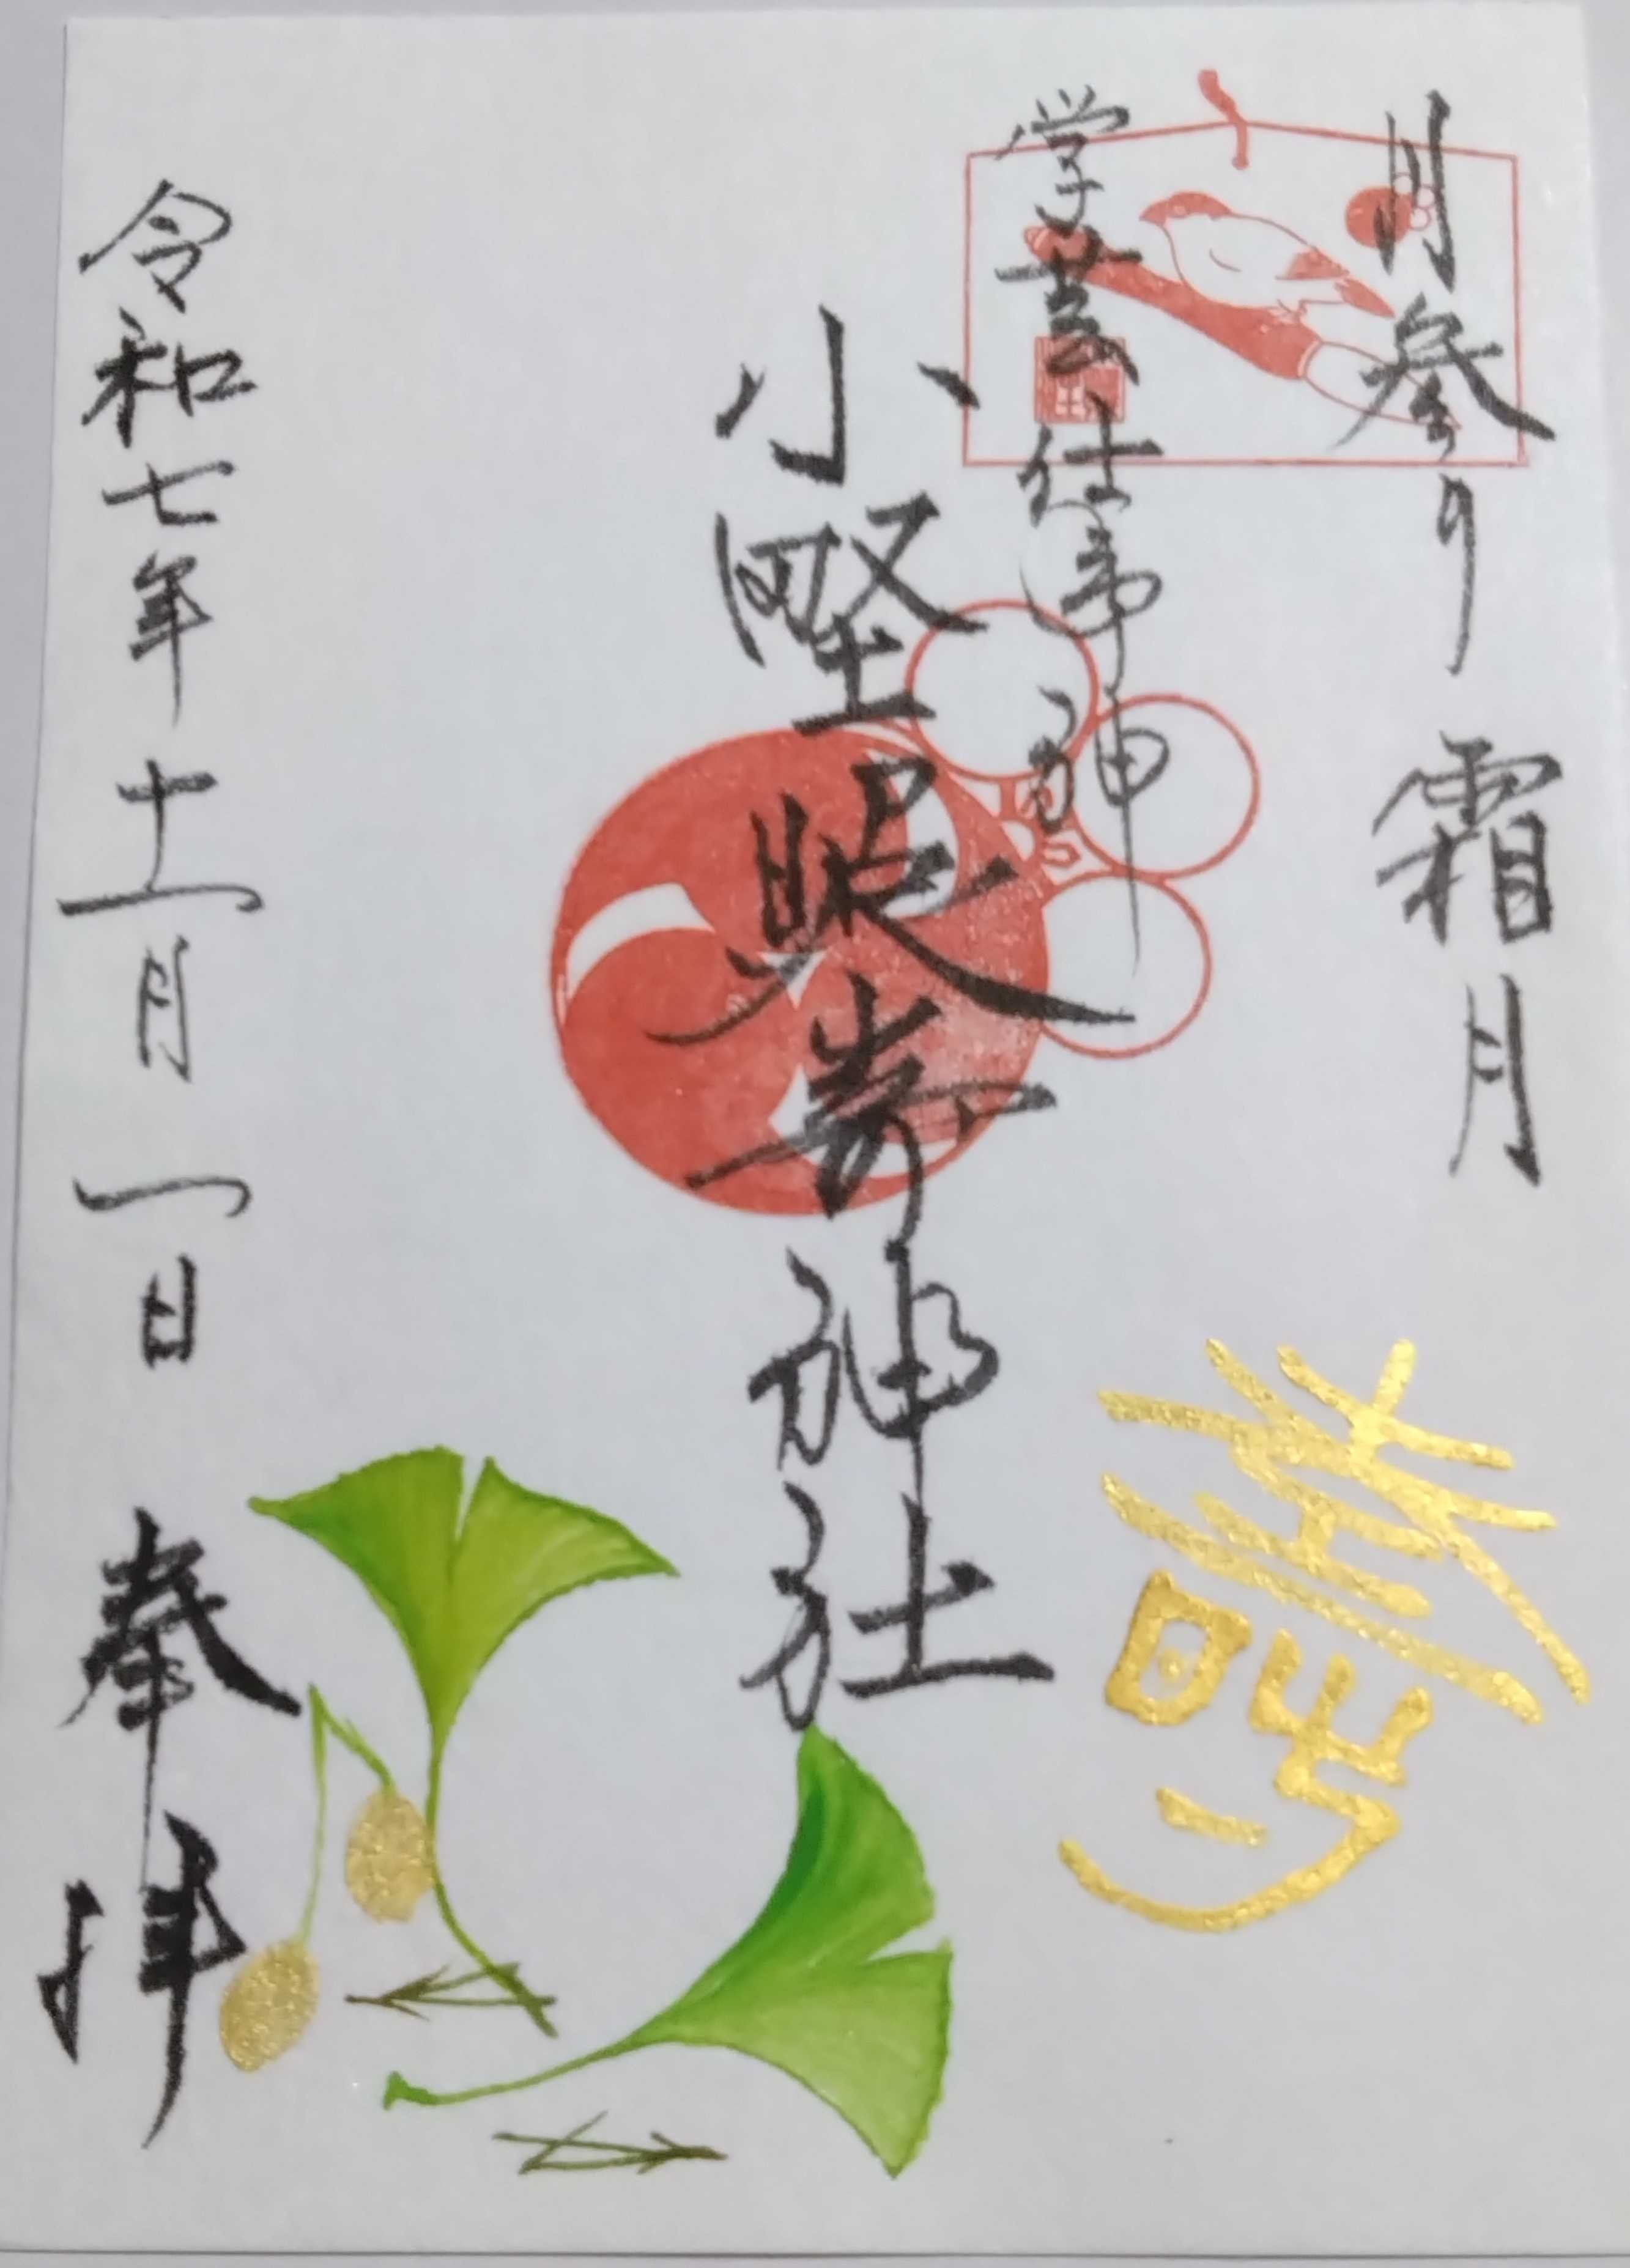 月参り 霜月
学芸仕事神
小野照崎神社
令和七年十一月一日 奉拝